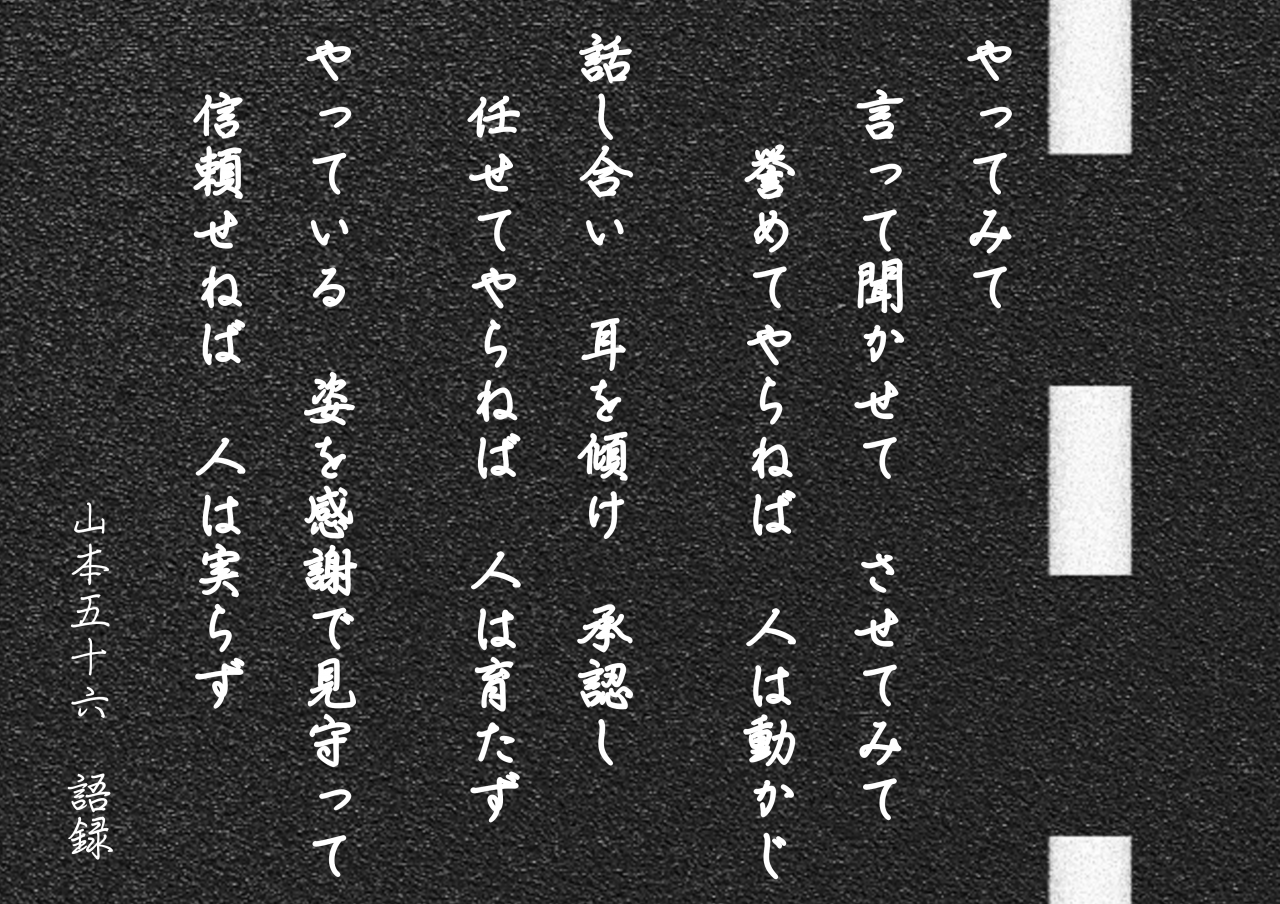 やってみて
言って聞かせて　させてみて
誉めてやらねば　人は動かじ
話し合い　耳を傾け　承認し
任せてやらねば　人は育たず
やっている　姿を感謝で見守って
信頼せねば　人は実らず
山本五十六　語録